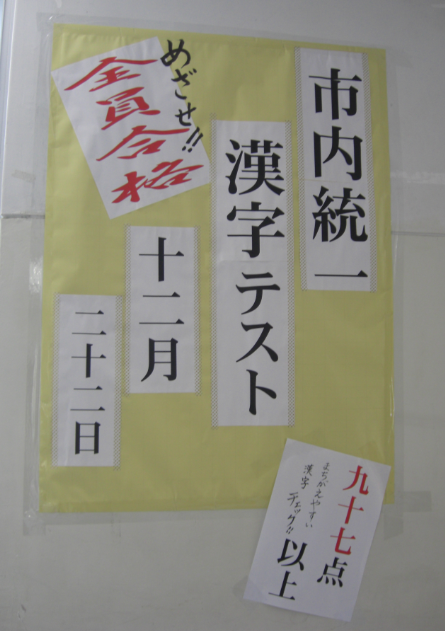 市内統一
漢字テスト
十二月
二十二日
めざせ!!
全員合格
九十七点
以上
まちがえやすい
漢字 チェック!!